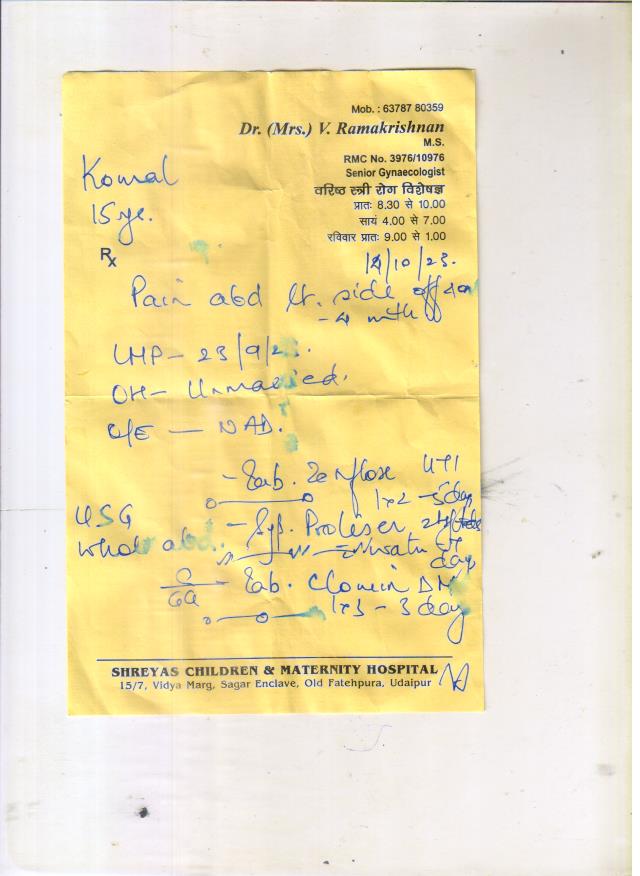 Mob. : 63787 80359
Dr. (Mrs.) V. Ramakrishnan
M.S.
RMC No. 3976/10976
Senior Gynaecologist
वरिष्ठ स्त्री रोग विशेषज्ञ
प्रातः 8.30 से 10.00
सायं 4.00 से 7.00
रविवार प्रातः 9.00 से 1.00
Komal
15 ye.
Rx
/10/23.
Pain abd lt. side off & on
- 4 mth
LMP - 23/9/23.
OH - Unmarried.
O/E - NAD.
- Tab. UTI
1x2 - 5 day
USG - Syp.
whole abd.
day
- Tab. DM
1x3 - 3 day
SHREYAS CHILDREN & MATERNITY HOSPITAL
15/7, Vidya Marg, Sagar Enclave, Old Fatehpura, Udaipur